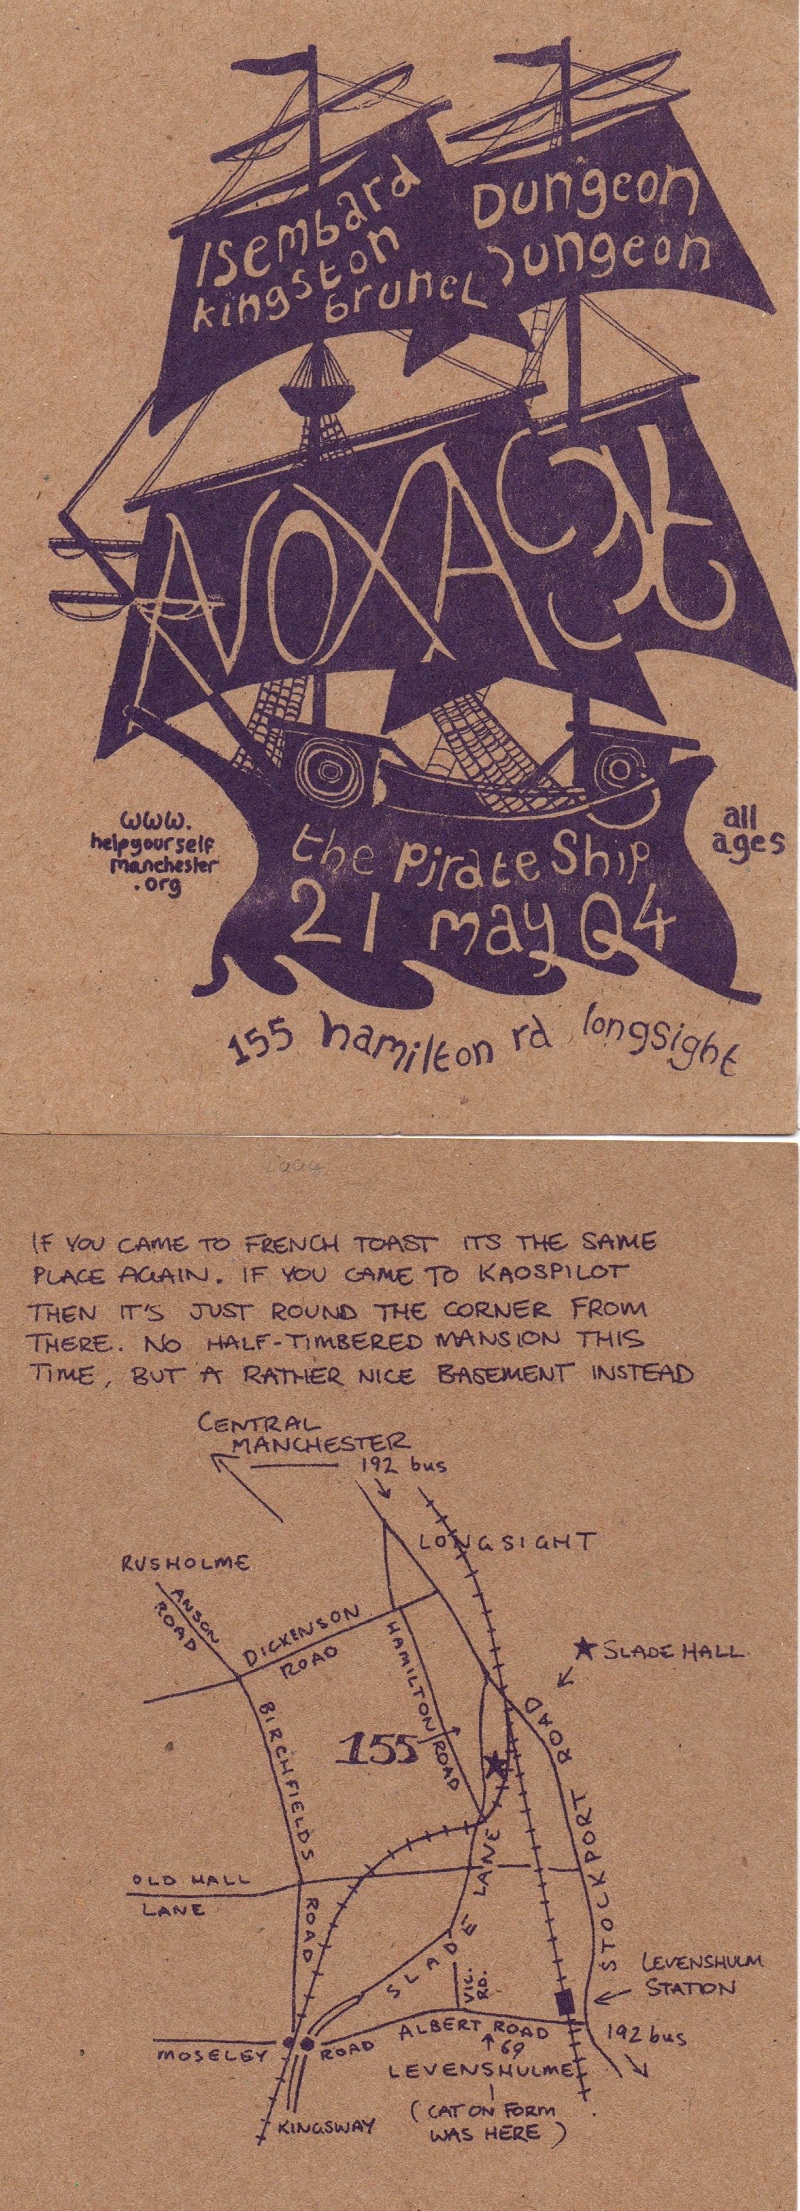 Isembard
kingston
brunel
Dungeon
Dungeon
NOXAGt
www.
helpyourself
manchester
.org
all
ages
the pirate ship
21 may 04
155 hamilton rd longsight
IF YOU CAME TO FRENCH TOAST ITS THE SAME
PLACE AGAIN. IF YOU CAME TO KAOSPILOT
THEN IT'S JUST ROUND THE CORNER FROM
THERE. NO HALF-TIMBERED MANSION THIS
TIME, BUT A RATHER NICE BASEMENT INSTEAD
CENTRAL
MANCHESTER
192 bus
LONGSIGHT
RUSHOLME
ANSON
ROAD
DICKENSON
ROAD
HAMILTON ROAD
SLADE HALL
BIRCHFIELDS ROAD
155
STOCKPORT ROAD
OLD HALL
LANE
SLADE LANE
VIC.
RD.
LEVENSHULM
STATION
ALBERT ROAD
192 bus
MOSELEY ROAD
69
LEVENSHULME
KINGSWAY
(CAT ON FORM
WAS HERE)